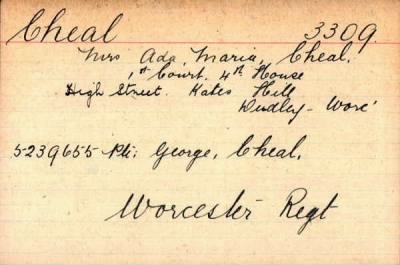 Cheal 3309
Mrs Ada, Maria, Cheal.
1st Court. 4th House
High Street. Kates Hill
Dudley - Worc'
5239655 Pte; George, Cheal.
Worcester Regt